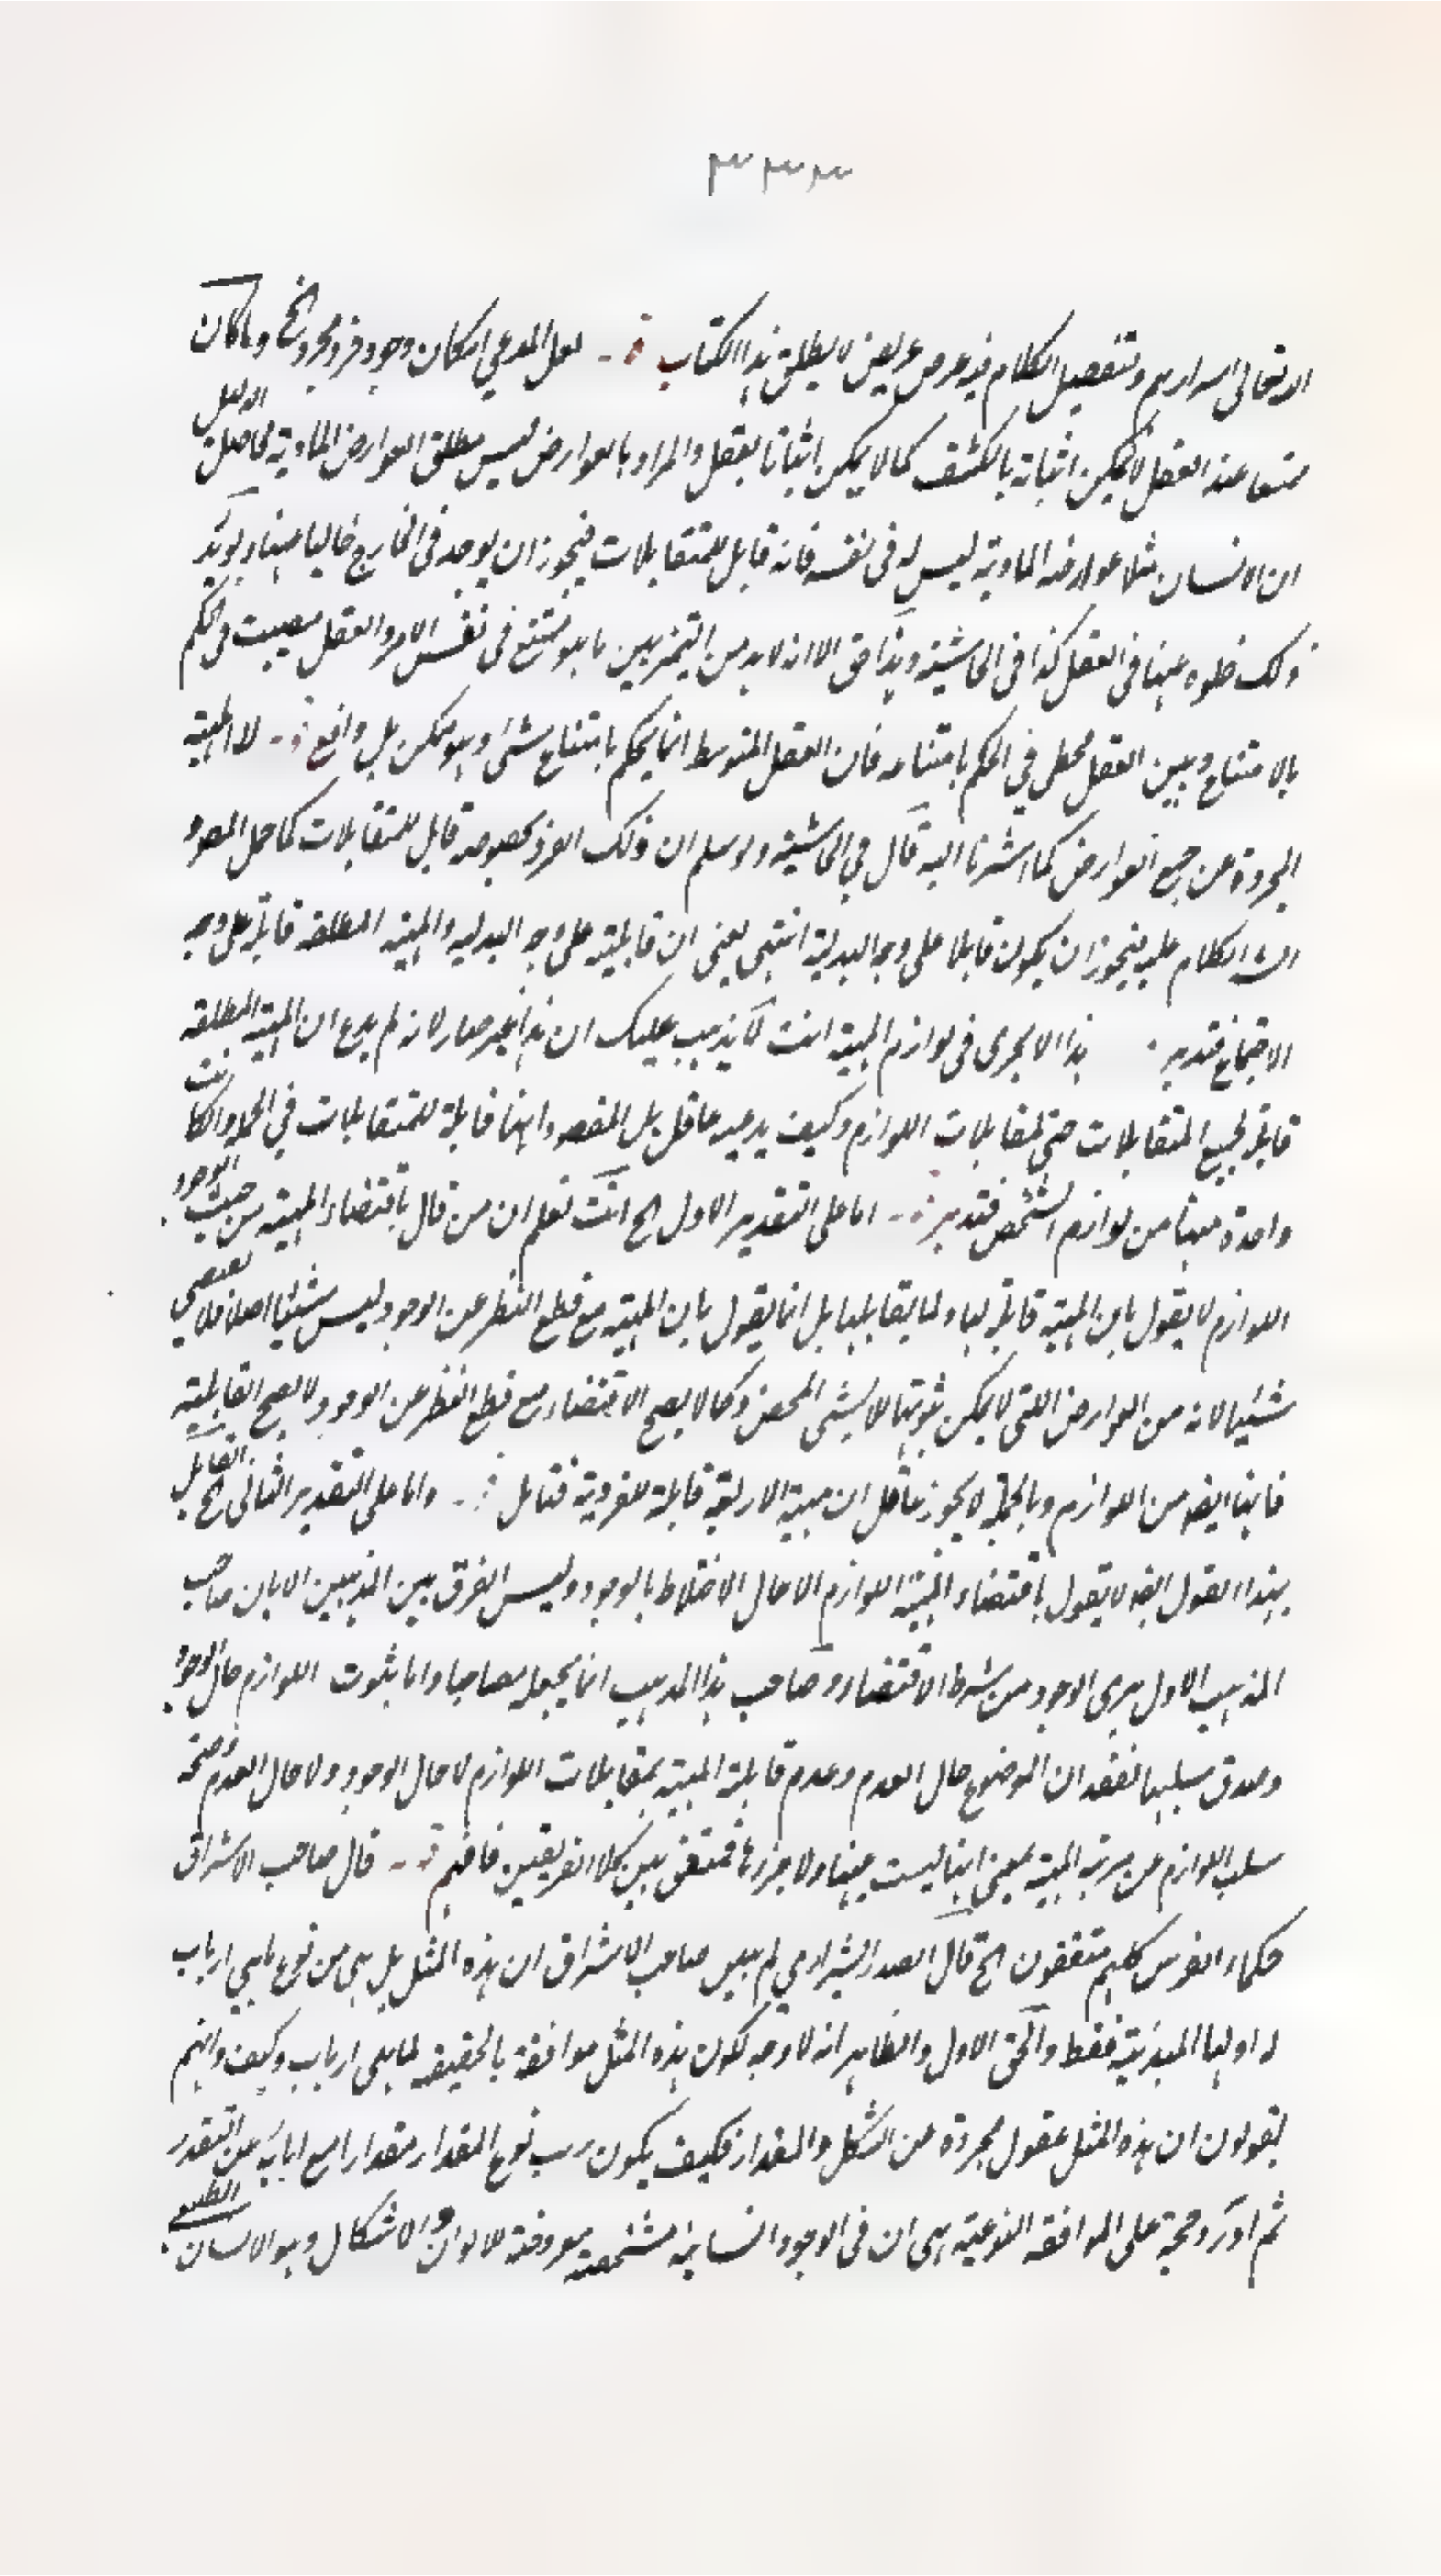 ٣٣٣
الله تعالى اسرارهم وتفصيل الكلام فيه عرض عريض لا يطلق هذا الكتاب قو لعل المدعي امكان وجود فرد مجرد الخ وما كان
عند العقل لا يمكن اثباته بالكشف كما لا يمكن اثباتا بعقل والمراد بالعوارض ليس مطلق العوارض المادية حاصل الدليل
ان الانسان مثلا عوارضه المادية ليس له في نفسه فانه قابل للمتقابلات فيجوز ان يوجد في الخارج خاليا عنها ويؤيد
ذلك خلوه عنها في العقل كذا في الحاشية وهذا حق الا انه لا بد من التميز بين ما هو ممتنع في نفس الامر والعقل مصيبت في الحكم
بالامتناع وبين العقل مخطي في الحكم بامتناعه فان العقل المتوسط انما يحكم بامتناع شئ وهو ممكن بل واقع قو لا المهية
المجردة عن جميع العوارض كما اشرنا اليه قال في الحاشية ولو سلم ان ذلك الفرد بخصوصه قابل للمتقابلات كما حمل المصرو
الكلام عليه فيجوز ان يكون قابلا على وجه البدلية انتهى يعني ان قابليته على وجه البدليه والمهية المطلقه قابلة على وجه
الاجتماع فتدبر هذا لا يجرى في لوازم المهية انت لا يذهب عليك ان هذا غير ضار لانه لم يدع ان المهية المطلقه
قابلة لجميع المتقابلات حتى لمقابلات اللوازم وكيف يدعيه عاقل بل المقصود انها قابلة للمتقابلات في الجملة وان كانت
واحدة منها من لوازم الشخص فتدبر قو اما على التقدير الاول الخ انت تعلم ان من قال باقتضاء المهية من حيث الوجود
اللوازم لا يقول بان المهية قابلة لها ولما يقابلها بل انما يقول بان المهية مع قطع النظر عن الوجود ليس شيئا اصلا فلا يقتضى
شيئا لانه من العوارض التي لا يمكن ثبوتها للاشئ المحض وكما لا يصح الاقتضاء مع قطع النظر عن الوجود لا يصح القابلية
فانها ايضه من اللوازم وبالجملة لا يجوز عاقل ان مهية الاربعة قابلة للفردية فتامل قو واما على التقدير الثاني الخ القايل
بهذا القول ايضه لا يقول باقتضاء المهية اللوازم الا حال الاختلاط بالوجود وليس الفرق بين المذهبين الا بان صاحب
المذهب الاول يرى الوجود من شرط الاقتضاء وصاحب هذا المذهب انما يجعله مصاحبا واما ثبوت اللوازم حال الوجود
وصدق سلبها لفقدان الموضوع حال العدم وعدم قابلية المهية بمقابلات اللوازم لا حال الوجود ولا حال العدم وصحة
سلب اللوازم عن مرتبة المهية بمعنى انها ليست عينها ولا جزءها فمتفق بين كلا الفريقين فافهم قو قال صاحب الاشراق
حكماء الفرس كلهم متفقون الخ قال الصدر الشيرازي لم يبين صاحب الاشراق ان هذه المثل بل هي من نوع ما هي ارباب
له او لها المبدئية فقط والحق الاول والظاهر انه لا وجه لكون هذه المثل موافقة بالحقيقه لما هي ارباب وكيف وانهم
يقولون ان هذه المثل عقول مجردة عن الشكل والمقدار فكيف يكون رب نوع المقدار مقدارا مع ابائه عن التقدر
ثم اورد حجة على الموافقة النوعية هي ان في الوجود انسانية مشخصة معروضة للالوان والاشكال وهو الانسان الطبعي